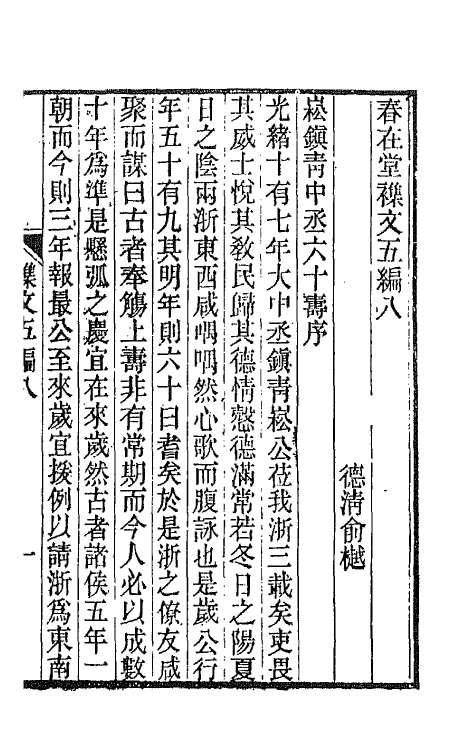 春在堂襍文五編八
德清俞樾
崧鎮青中丞六十壽序
光緒十有七年大中丞鎮青崧公莅我浙三載矣吏畏
其威士悅其敎民歸其德情慤德滿常若冬日之陽夏
日之陰兩浙東西咸喁喁然心歌而腹詠也是歲公行
年五十有九其明年則六十曰耆矣於是浙之僚友咸
聚而謀曰古者奉觴上壽非有常期而今人必以成數
十年爲準是懸弧之慶宜在來歲然古者諸侯五年一
朝而今則三年報最公至來歲宜援例以請浙爲東南
襍文五編八
一